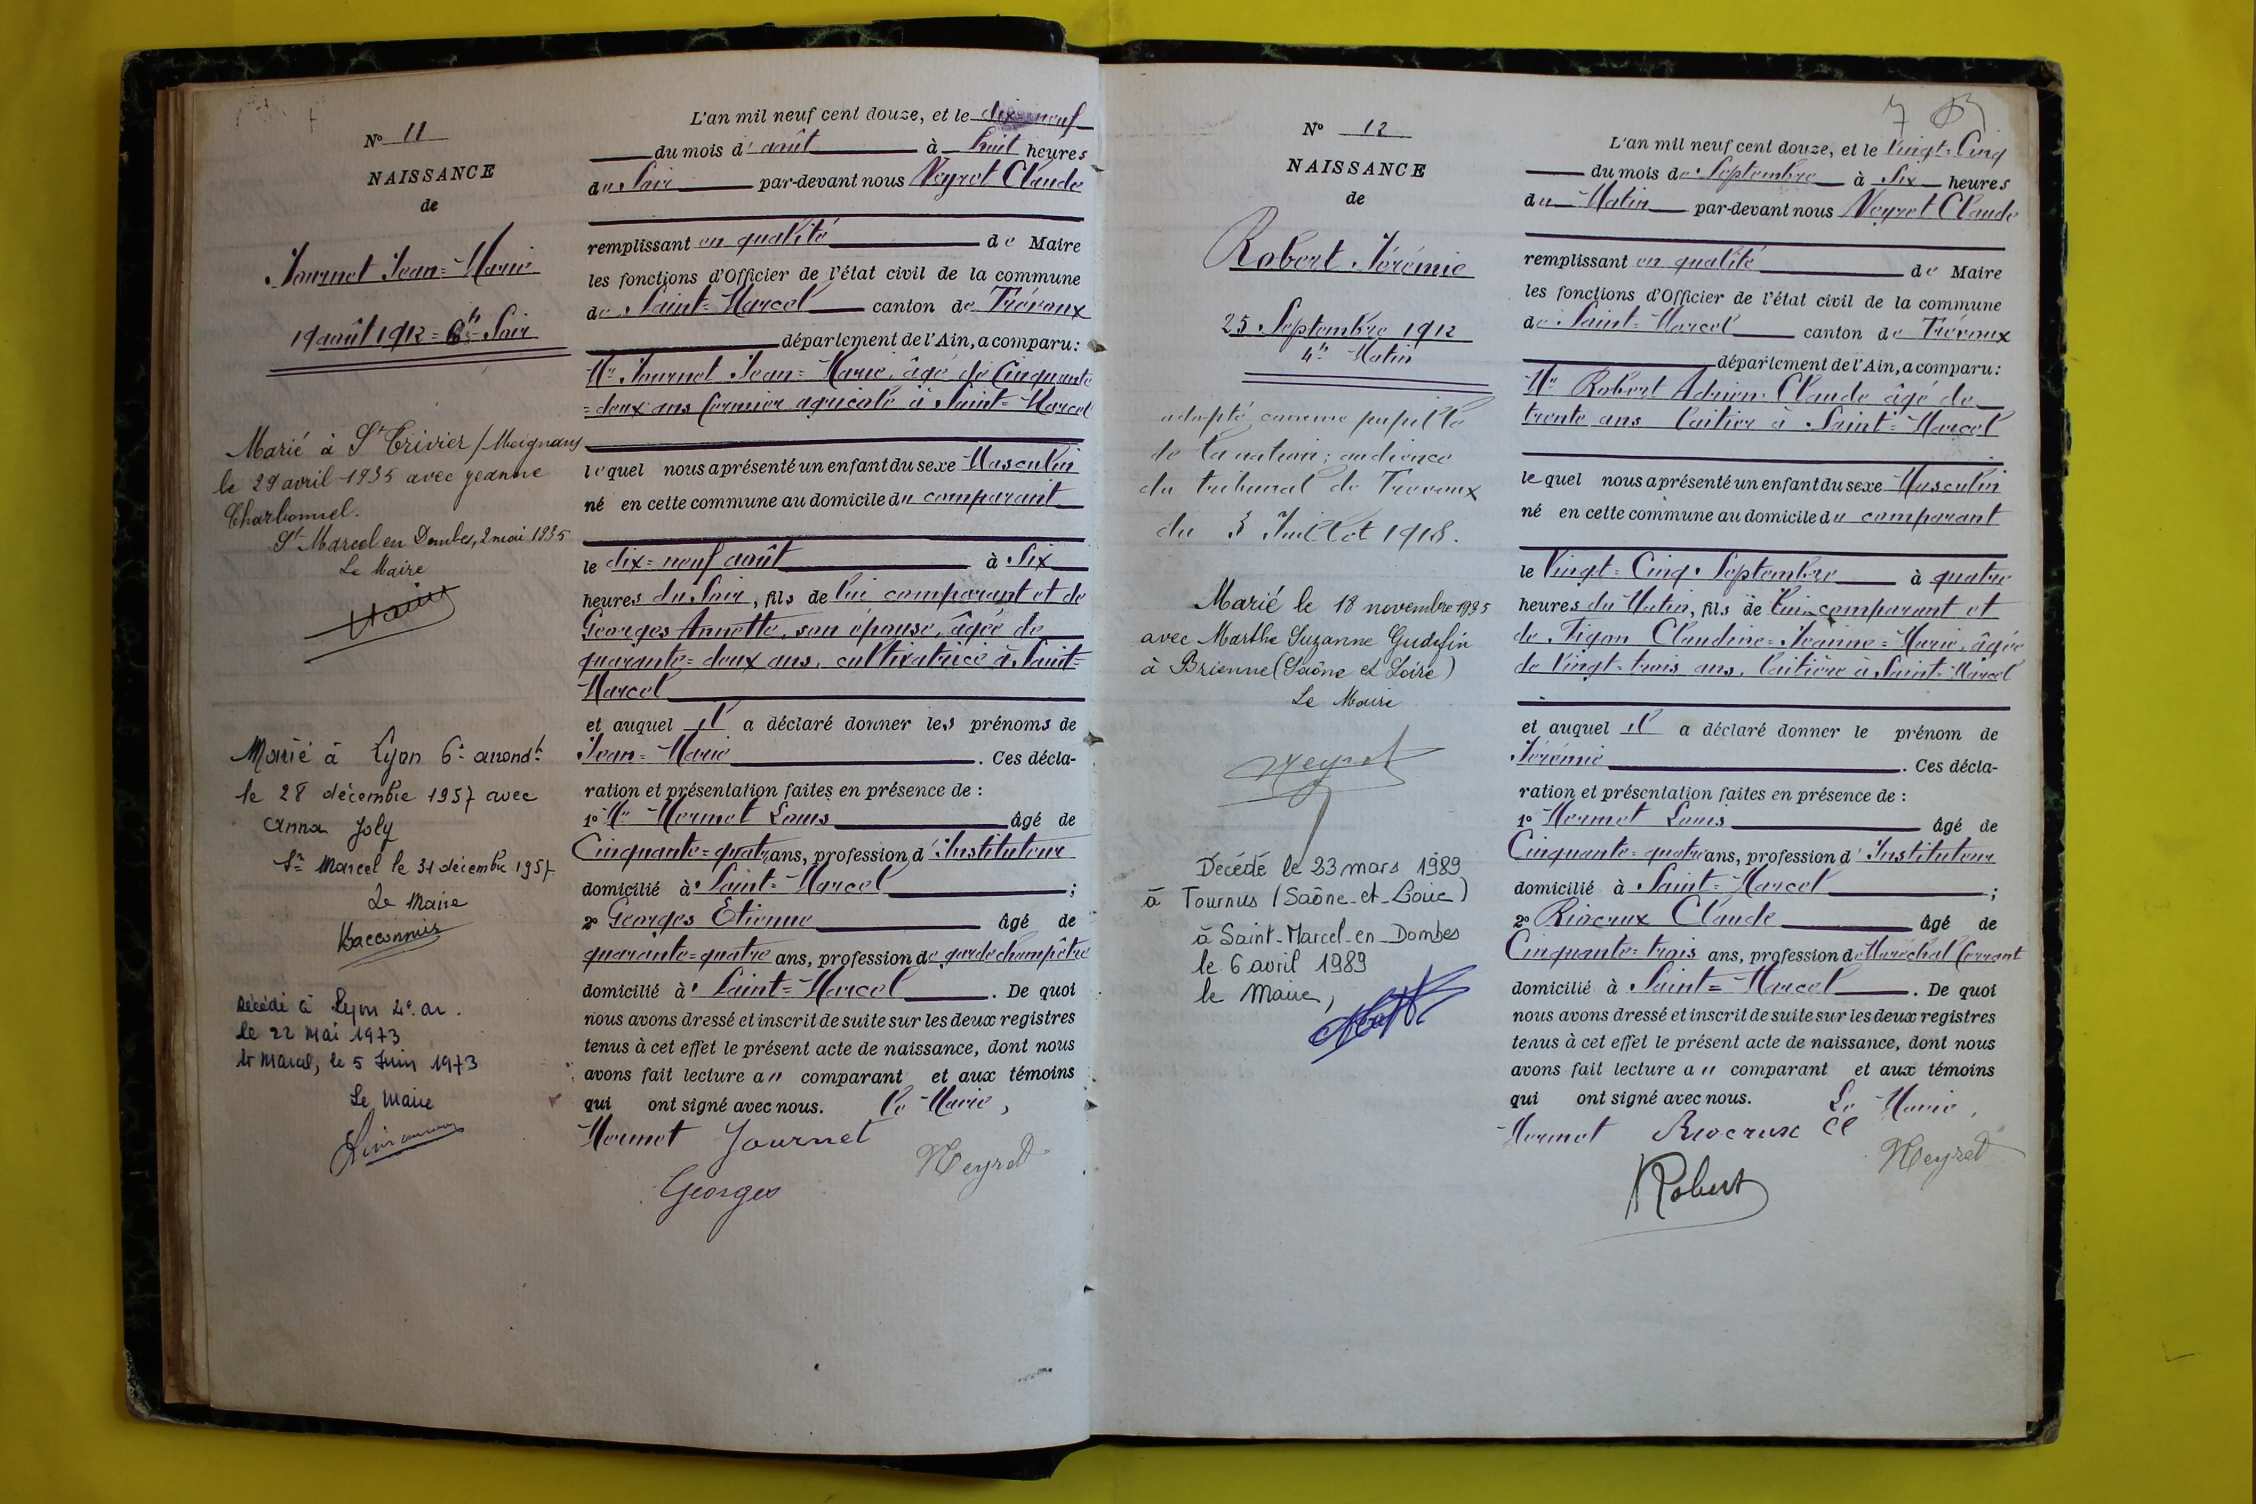 N° 11
NAISSANCE
de
Journet Jean=Marie
19 août 1912 = 6h Soir
Marié à St Trivier/Moignans
le 29 avril 1935 avec Jeanne
Charbonnel.
St Marcel en Dombes, 2 mai 1935
Le Maire
Marié à Lyon 6è arrondt
le 28 décembre 1957 avec
Anna Joly
St Marcel le 31 décembre 1957
Le Maire
Décédé à Lyon 2e. ar.
le 22 Mai 1973
St Marcel, le 5 Juin 1973
Le Maire
L'an mil neuf cent douze, et le dix-neuf
du mois d'août à huit heures
du Soir par-devant nous Neyret Claude
remplissant en qualité de Maire
les fonctions d'Officier de l'état civil de la commune
de Saint=Marcel canton de Trévoux
département de l'Ain, a comparu:
Mr Journet Jean=Marie, âgé de Cinquante
=deux ans fermier agricole à Saint=Marcel
lequel nous a présenté un enfant du sexe Masculin
né en cette commune au domicile du comparant
le dix=neuf août à Six
heures du Soir, fils de lui comparant et de
Georges Annette, son épouse, âgée de
quarante=deux ans, cultivatrice à Saint=
Marcel
et auquel il a déclaré donner les prénoms de
Jean=Marie. Ces décla-
ration et présentation faites en présence de :
1° Mr Mermet Louis âgé de
Cinquante=quatre ans, profession d'Instituteur
domicilié à Saint=Marcel ;
2° Georges Etienne âgé de
quarante=quatre ans, profession de garde champêtre
domicilié à Saint=Marcel. De quoi
nous avons dressé et inscrit de suite sur les deux registres
tenus à cet effet le présent acte de naissance, dont nous
avons fait lecture au comparant et aux témoins
qui ont signé avec nous. Le Maire,
Mermet Journet
Neyret
Georges
7
N° 12
NAISSANCE
de
Robert Jérémie
25 Septembre 1912
4h Matin
adopté comme pupille
de la nation; audience
du tribunal de Trévoux
du 3 Juillet 1918.
Marié le 18 novembre 1935
avec Marthe Suzanne Gudefin
à Brienne (Saône et Loire)
Le Maire
Neyret
Décédé le 23 mars 1989
à Tournus (Saône-et-Loire)
à Saint-Marcel-en-Dombes
le 6 avril 1989
le Maire,
L'an mil neuf cent douze, et le vingt=Cinq
du mois de Septembre à Six heures
du Matin par-devant nous Neyret Claude
remplissant en qualité de Maire
les fonctions d'Officier de l'état civil de la commune
de Saint=Marcel canton de Trévoux
département de l'Ain, a comparu:
Mr Robert Adrien Claude âgé de
trente ans laitier à Saint=Marcel
lequel nous a présenté un enfant du sexe Masculin
né en cette commune au domicile du comparant
le Vingt=Cinq Septembre à quatre
heures du Matin, fils de lui comparant et
de Pigon Claudine=Jeanne=Marie, âgée
de vingt-trois ans, laitière à Saint=Marcel
et auquel il a déclaré donner le prénom de
Jérémie. Ces décla-
ration et présentation faites en présence de :
1° Mermet Louis âgé de
Cinquante=quatre ans, profession d'Instituteur
domicilié à Saint=Marcel ;
2° Riocrux Claude âgé de
Cinquante=trois ans, profession de Maréchal ferrant
domicilié à Saint=Marcel. De quoi
nous avons dressé et inscrit de suite sur les deux registres
tenus à cet effet le présent acte de naissance, dont nous
avons fait lecture au comparant et aux témoins
qui ont signé avec nous. Le Maire,
Mermet Riocrux Cl
Neyret
Robert